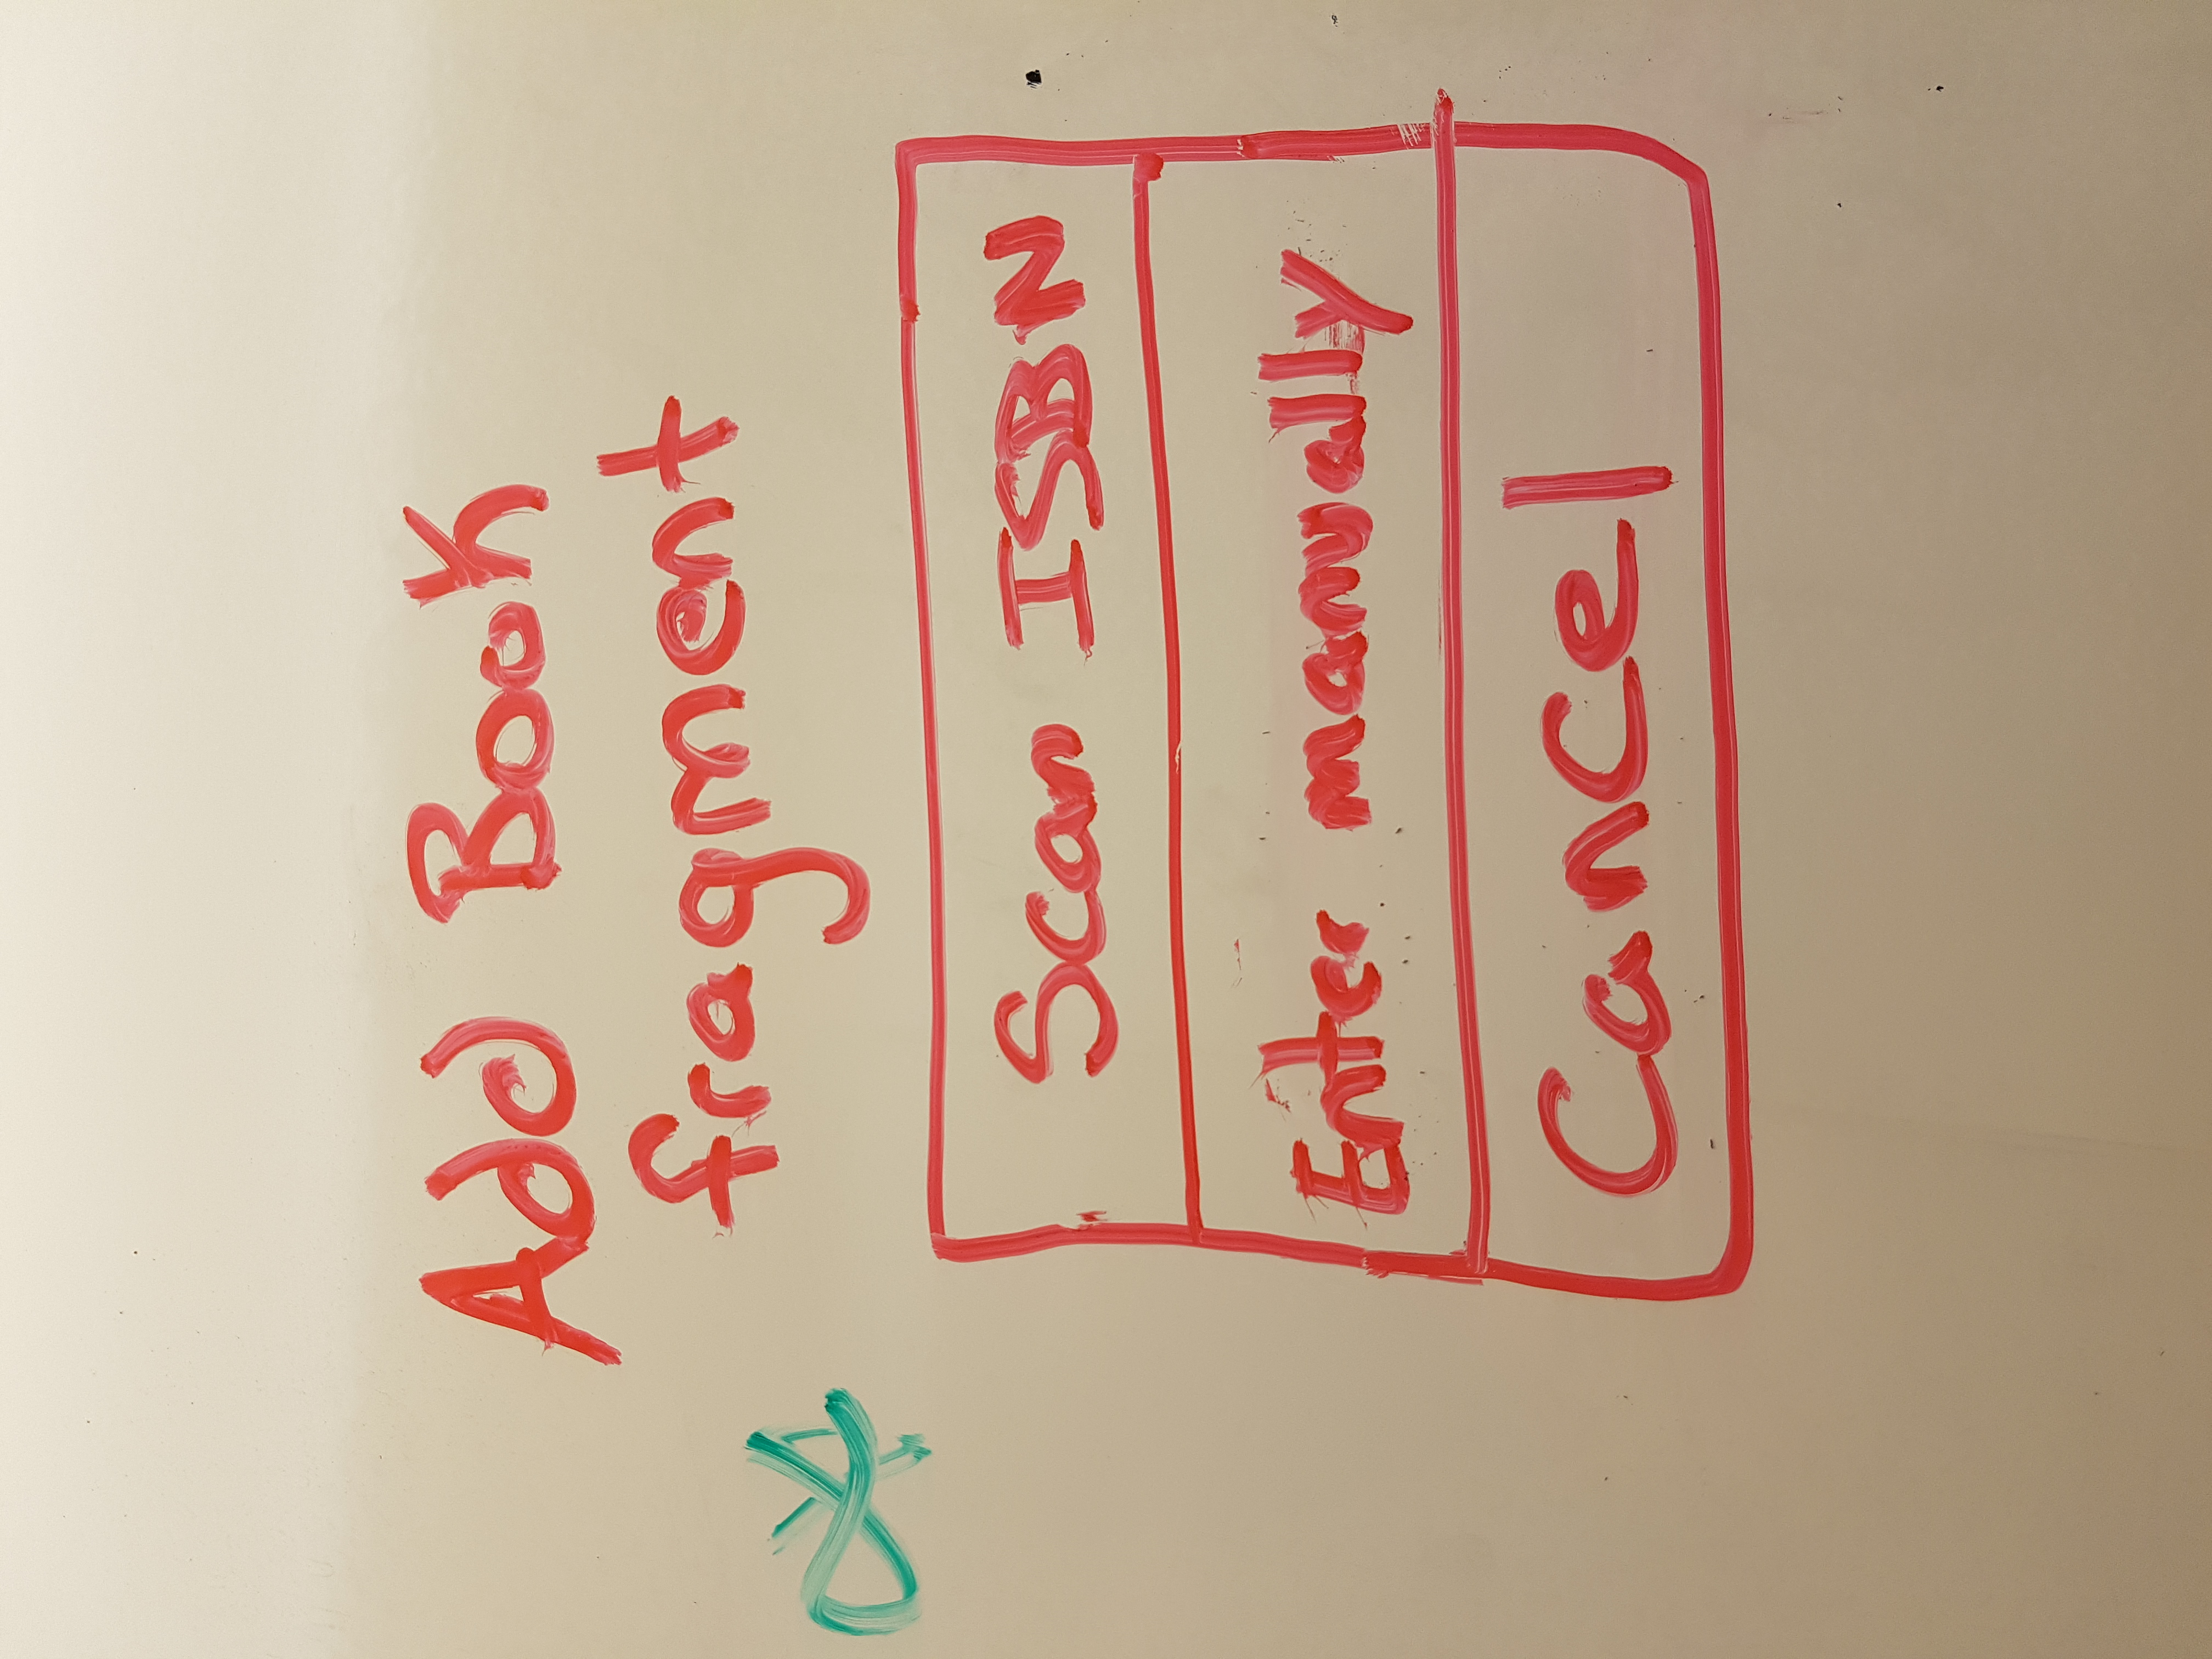 Add Book
fragment
Scan ISBN
Enter manually
Cancel